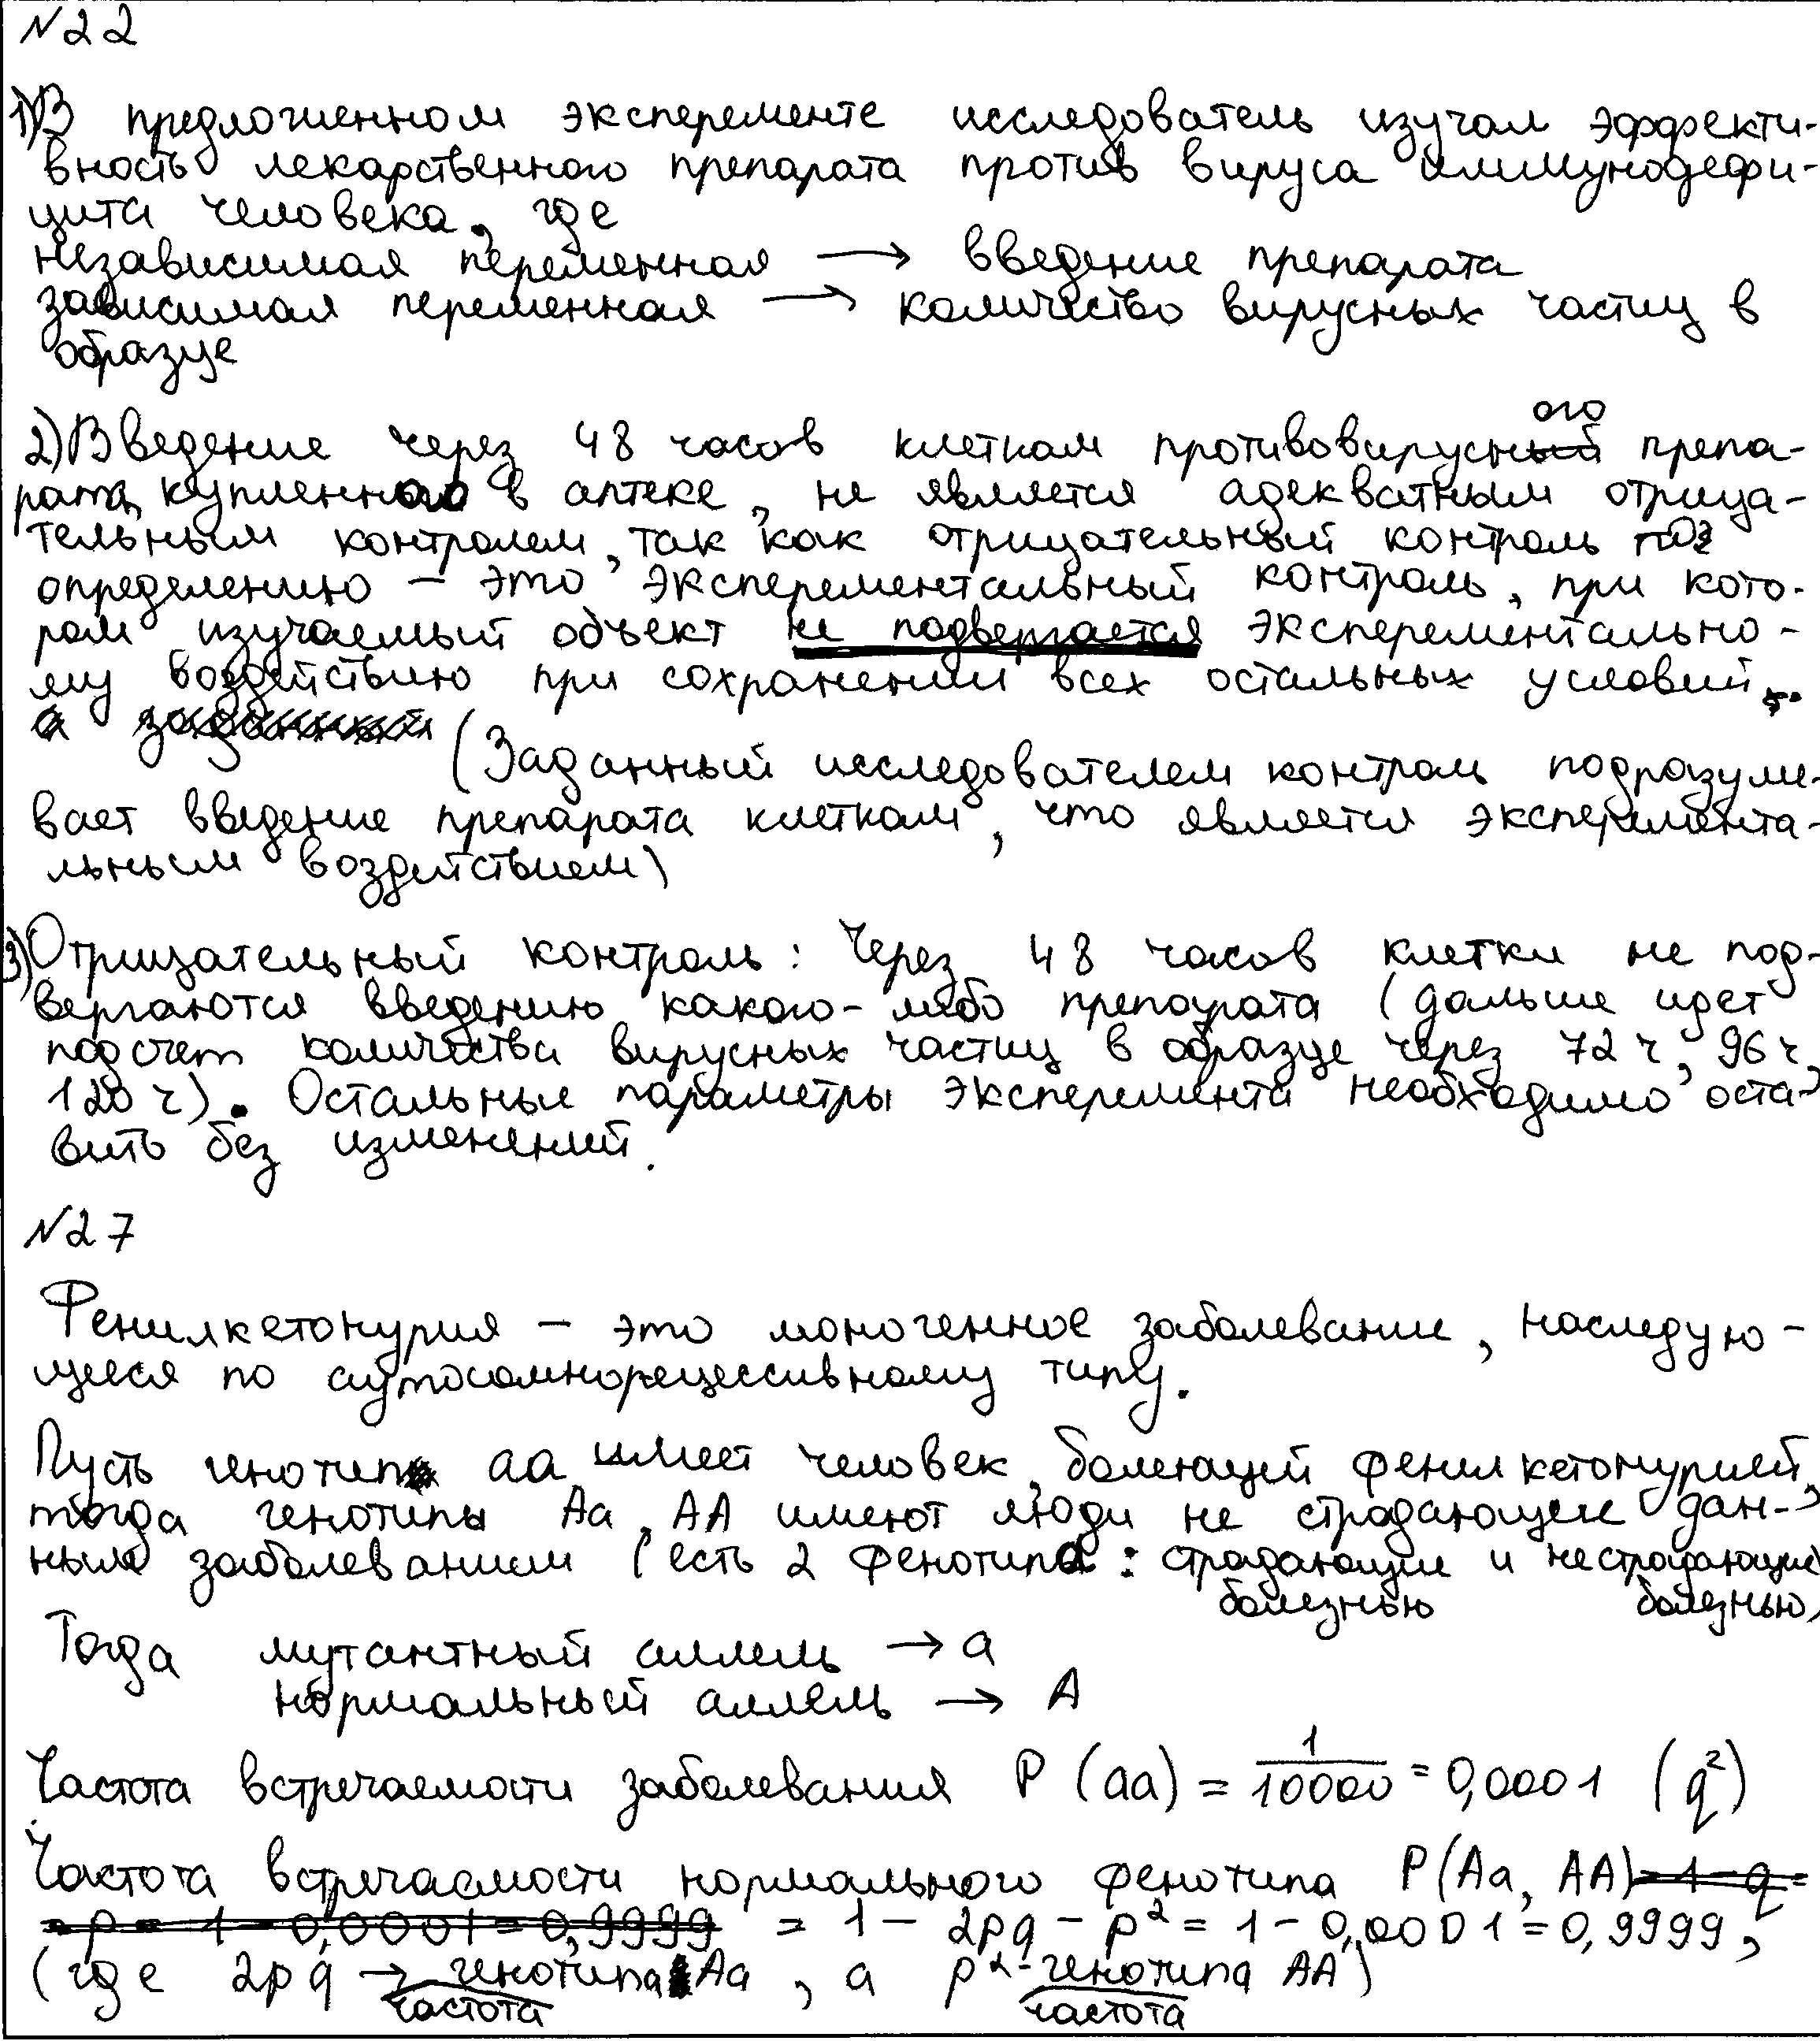 N22
1) В предложенном эксперементе исследователь изучал эффекти-
вность лекарственного препарата против вируса иммунодефи-
цита человека, где
независимая переменная → введение препарата
зависимая переменная → количество вирусных частиц в
образце
2) Введение через 48 часов клеткам противовирусного препа-
рата, купленного в аптеке, не является адекватным отрица-
тельным контролем, так как отрицательный контроль по
определению – это эксперементальный контроль, при кото-
ром изучаемый объект не подвергается эксперементально-
му воздействию при сохранении всех остальных условий.
(Заданный исследователем контроль подразуме-
вает введение препарата клеткам, что является эксперимента-
льным воздействием)
3) Отрицательный контроль: Через 48 часов клетки не под-
вергаются введению какого-либо препарата (дальше идет
подсчет количества вирусных частиц в образце через 72 ч, 96 ч,
120 ч). Остальные параметры эксперемента необходимо оста-
вить без изменений.
N27
Фенилкетонурия – это моногенное заболевание, наследую-
щееся по аутосомнорецессивному типу.
Пусть генотип aa имеет человек, болеющий фенилкетонурией,
тогда генотипы Aa, AA имеют люди не страдающие дан-
ным заболеванием (есть 2 фенотипа: страдающие и нестрадающие
болезнью болезнью)
Тогда мутантный аллель → a
нормальный аллель → A
Частота встречаемости заболевания P (aa) = 1/10000 = 0,0001 (q²)
Частота встречаемости нормального фенотипа P(Aa, AA) = 1 – q =
= p = 1 – 0,0001 = 0,9999 = 1 – 2pq – p² = 1 – 0,0001 = 0,9999,
(где 2pq → генотипа Aa, а p² - генотипа AA)
частота частота